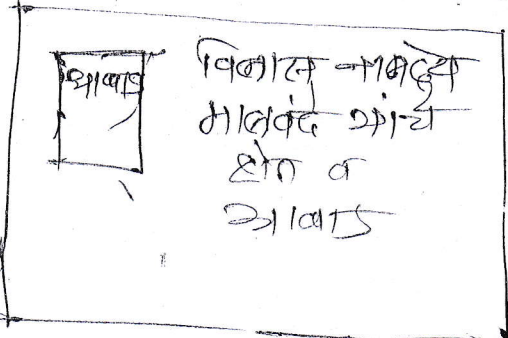 आवाड
विलास नामदेव
मालवदे यांचे
शेत व
आवाड